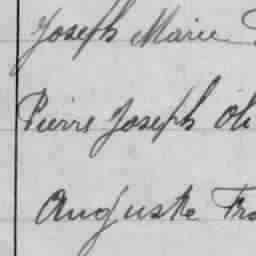 Joseph Marie
Pierre Joseph Oli
Auguste Fra